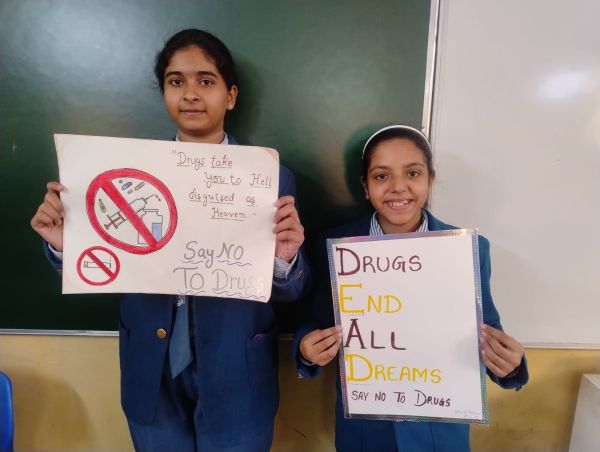 "Drugs take
you to Hell
disguised as
Heaven"
Say NO
TO Drugs
DRUGS
END
ALL
DREAMS
SAY NO TO DRUGS